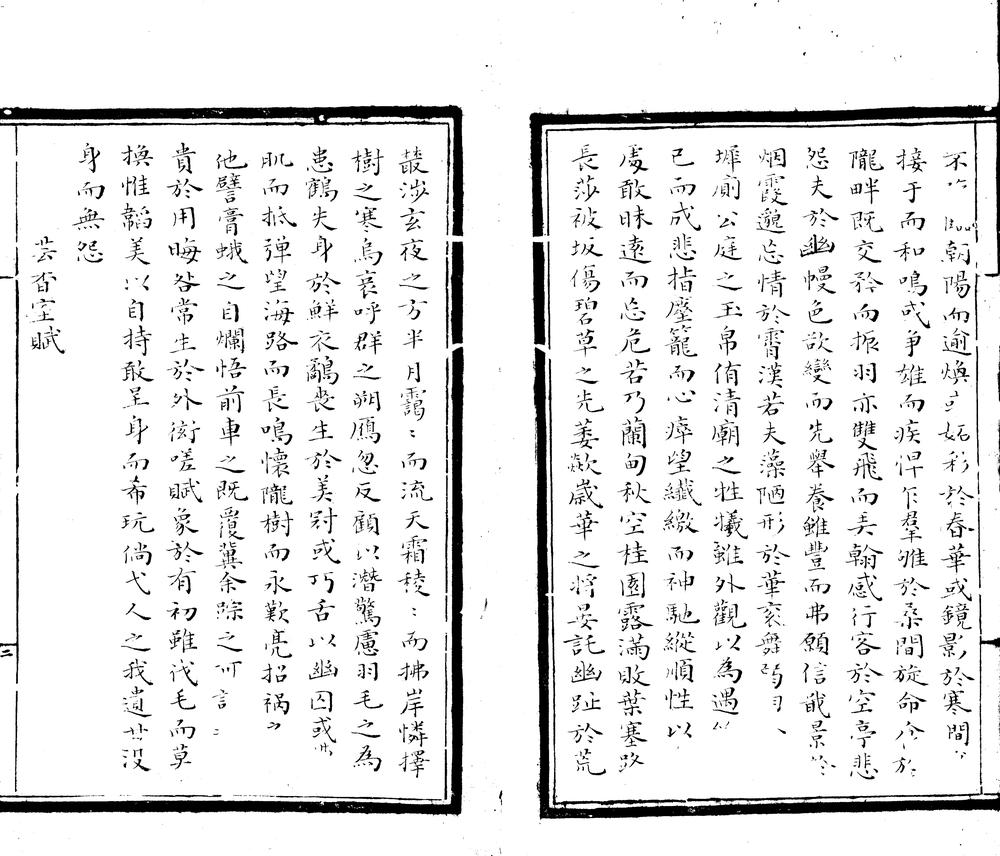 不 臨朝陽而逾煥 妬彩於春華或鏡影於寒間
接于而和鳴或爭雄而疾悍乍羣唯於桑間旋命 於
隴畔既交矜而振羽亦雙飛而弄翰感行客於空亭悲
怨夫於幽幔色欲變而先舉養雖豐而弗願信戢景於
烟霞邈忘情於霄漢若夫藻陋形於華衮舞
墀廟公庭之玉帛侑清廟之牲犧雖外觀以為遇
已而成悲指塵籠而心瘁望纖繳而神馳縱順性以
處敢昧遠而忘危若乃蘭甸秋空桂園露滿敗葉塞路
長莎被坂傷碧草之先萎歎歲華之將晏託幽趾於荒
叢涉玄夜之方半月靄〻而流天霜稜〻而拂岸憐擇
樹之寒烏哀呼群之朔鴈忽反顧以潛驚慮羽毛之為
患鶴失身於鮮衣鷸喪生於美冠或巧舌以幽囚或
肌而抵彈望海路而長鳴懷隴樹而永歎亮招禍之
他譬膏蛾之自爛悟前車之既覆冀余踪之可言
貴於用晦咎常生於外衒嗟賦象於有初雖伐毛而莫
換惟韜美以自持敢呈身而希玩倘弋人之我遺甘沒
身而無怨
芸香室賦
二